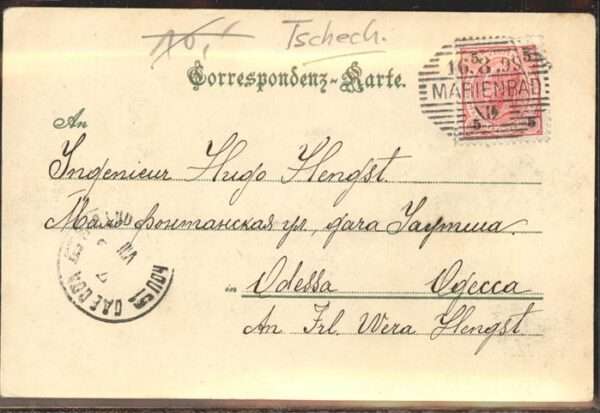 10,-
Tschech.
Correspondenz-Karte.
16.8.98
MARIENBAD
5 5
An
Ingenieur Hugo Hengst
Мало фонтанская ул, дача Гаутша.
in Odessa Одесса
An Frl. Wera Hengst.